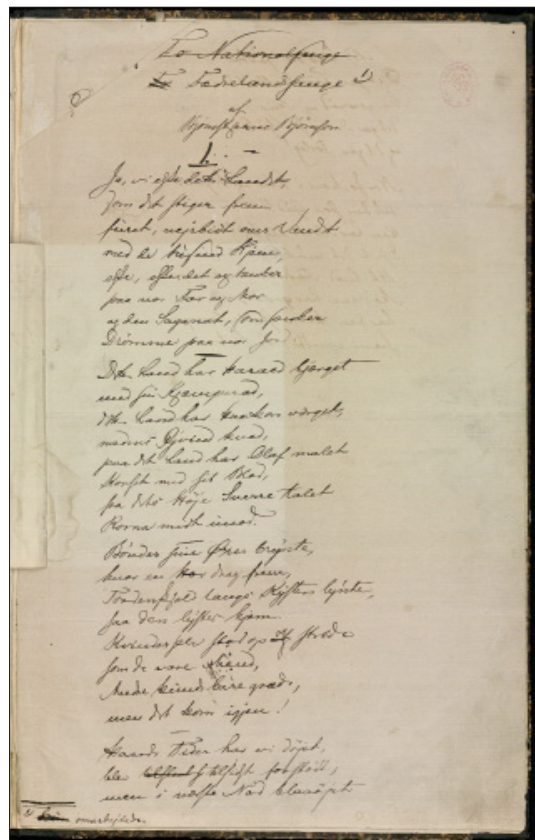 To Nationalsange
To Fædrelandssange 1)
af
Bjørnstjerne Bjørnson
1.
Ja, vi elske dette Landet,
som det stiger frem
furet, vejrbidt over Vandet
med de tusind Hjem,
elske, elske det og tænker
paa vor Far og Mor
og den Saganat, som sænker
Drømme paa vor Jord
Dette Land har Harald bjærget
med sin Kjæmperad,
dette Land har Haakon værget,
medens Øjvind kvad,
paa det Land har Olaf malet
Korset med sit Blod,
fra dets Høje Sverre talet
Roma midt imod.
Bønder sine Øxer brynte,
hvor en Hær drog frem,
Tordenskjold langs Kysten lynte,
saa den lystes hjem.
Kvinder selv stod op og stred
som de vare Mænd,
Andre kunde bare græde,
men det kom igjen!
Haarde Tider har vi døjet,
blev tilsidst forstødt,
men i værste Nød blaaøjet
1) omarbejdede.